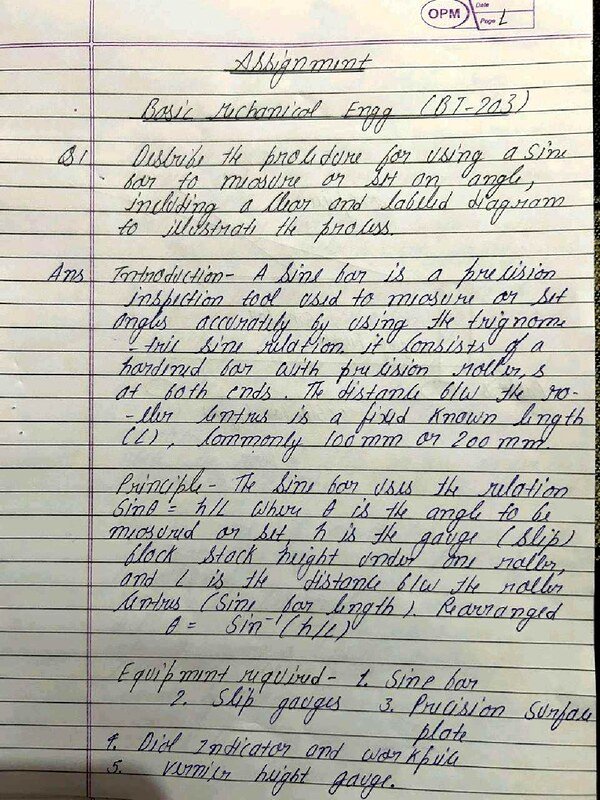 OPM
Date
Page 1
Assignment
Basic Mechanical Engg (BT-203)
Q1 Describe the procedure for using a Sine
bar to measure or set an angle,
including a clear and labeled diagram
to illustrate the process.
Ans Introduction- A Sine bar is a precision
inspection tool used to measure or set
angles accurately by using the trignome
-tric sine relation. it consists of a
hardened bar with precision roller,s
at both ends. The distance b/w the ro-
-ller centres is a fixed known length
(L), commonly 100mm or 200 mm.
Principle- The Sine bar uses the relation
Sinθ = h/L where θ is the angle to be
measured or set h is the gauge (slip)
block stack height under one roller,
and L is the distance b/w the roller
centres (Sine bar length). Rearranged
θ = Sin⁻¹(h/L)
Equipment required- 1. Sine bar
2. Slip gauges 3. Precision Surface
plate
4. Dial Indicator and workpiece
5. vernier height gauge.